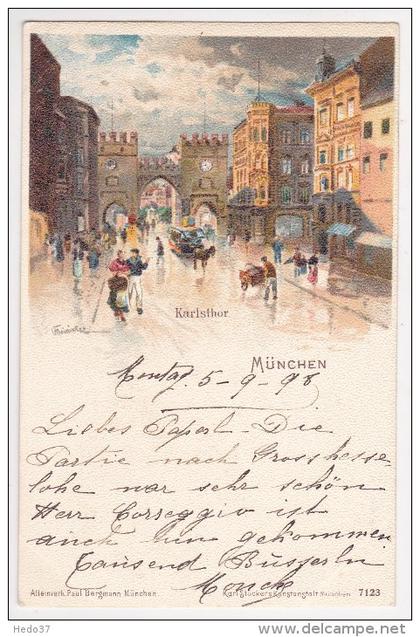 Karlsthor
MÜNCHEN
Montag. 5-9-98
Liebes Paperl. Die
Partie nach Grosshesse-
lohe war sehr schön
Herr Correggio ist
auch hin gekommen
Tausend Busserln
Alleinverk. Paul Bergmann München.
Karl Stücker's Kunstanstalt München
7123
Hedo37
www.delcampe.net